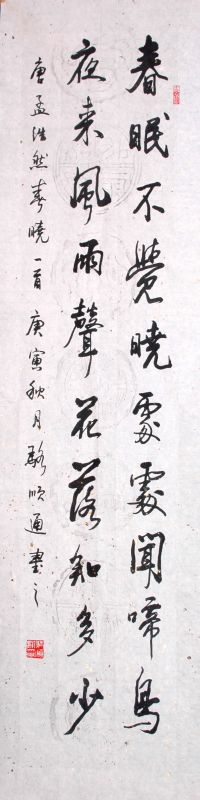 春眠不覺曉處處聞啼鳥
夜来風雨聲花落知多少
唐孟浩然春曉一首庚寅秋月駱順通書之